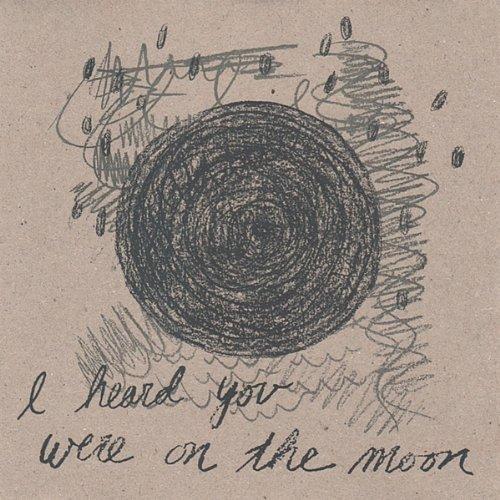 I heard you
were on the moon